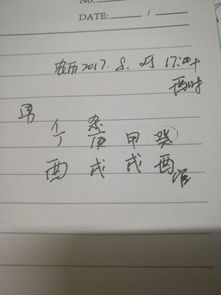 NO.
DATE:
农历2017.8.25 17:00
酉时
男 杀
丁 庚 甲 癸
酉 戌 戌 酉